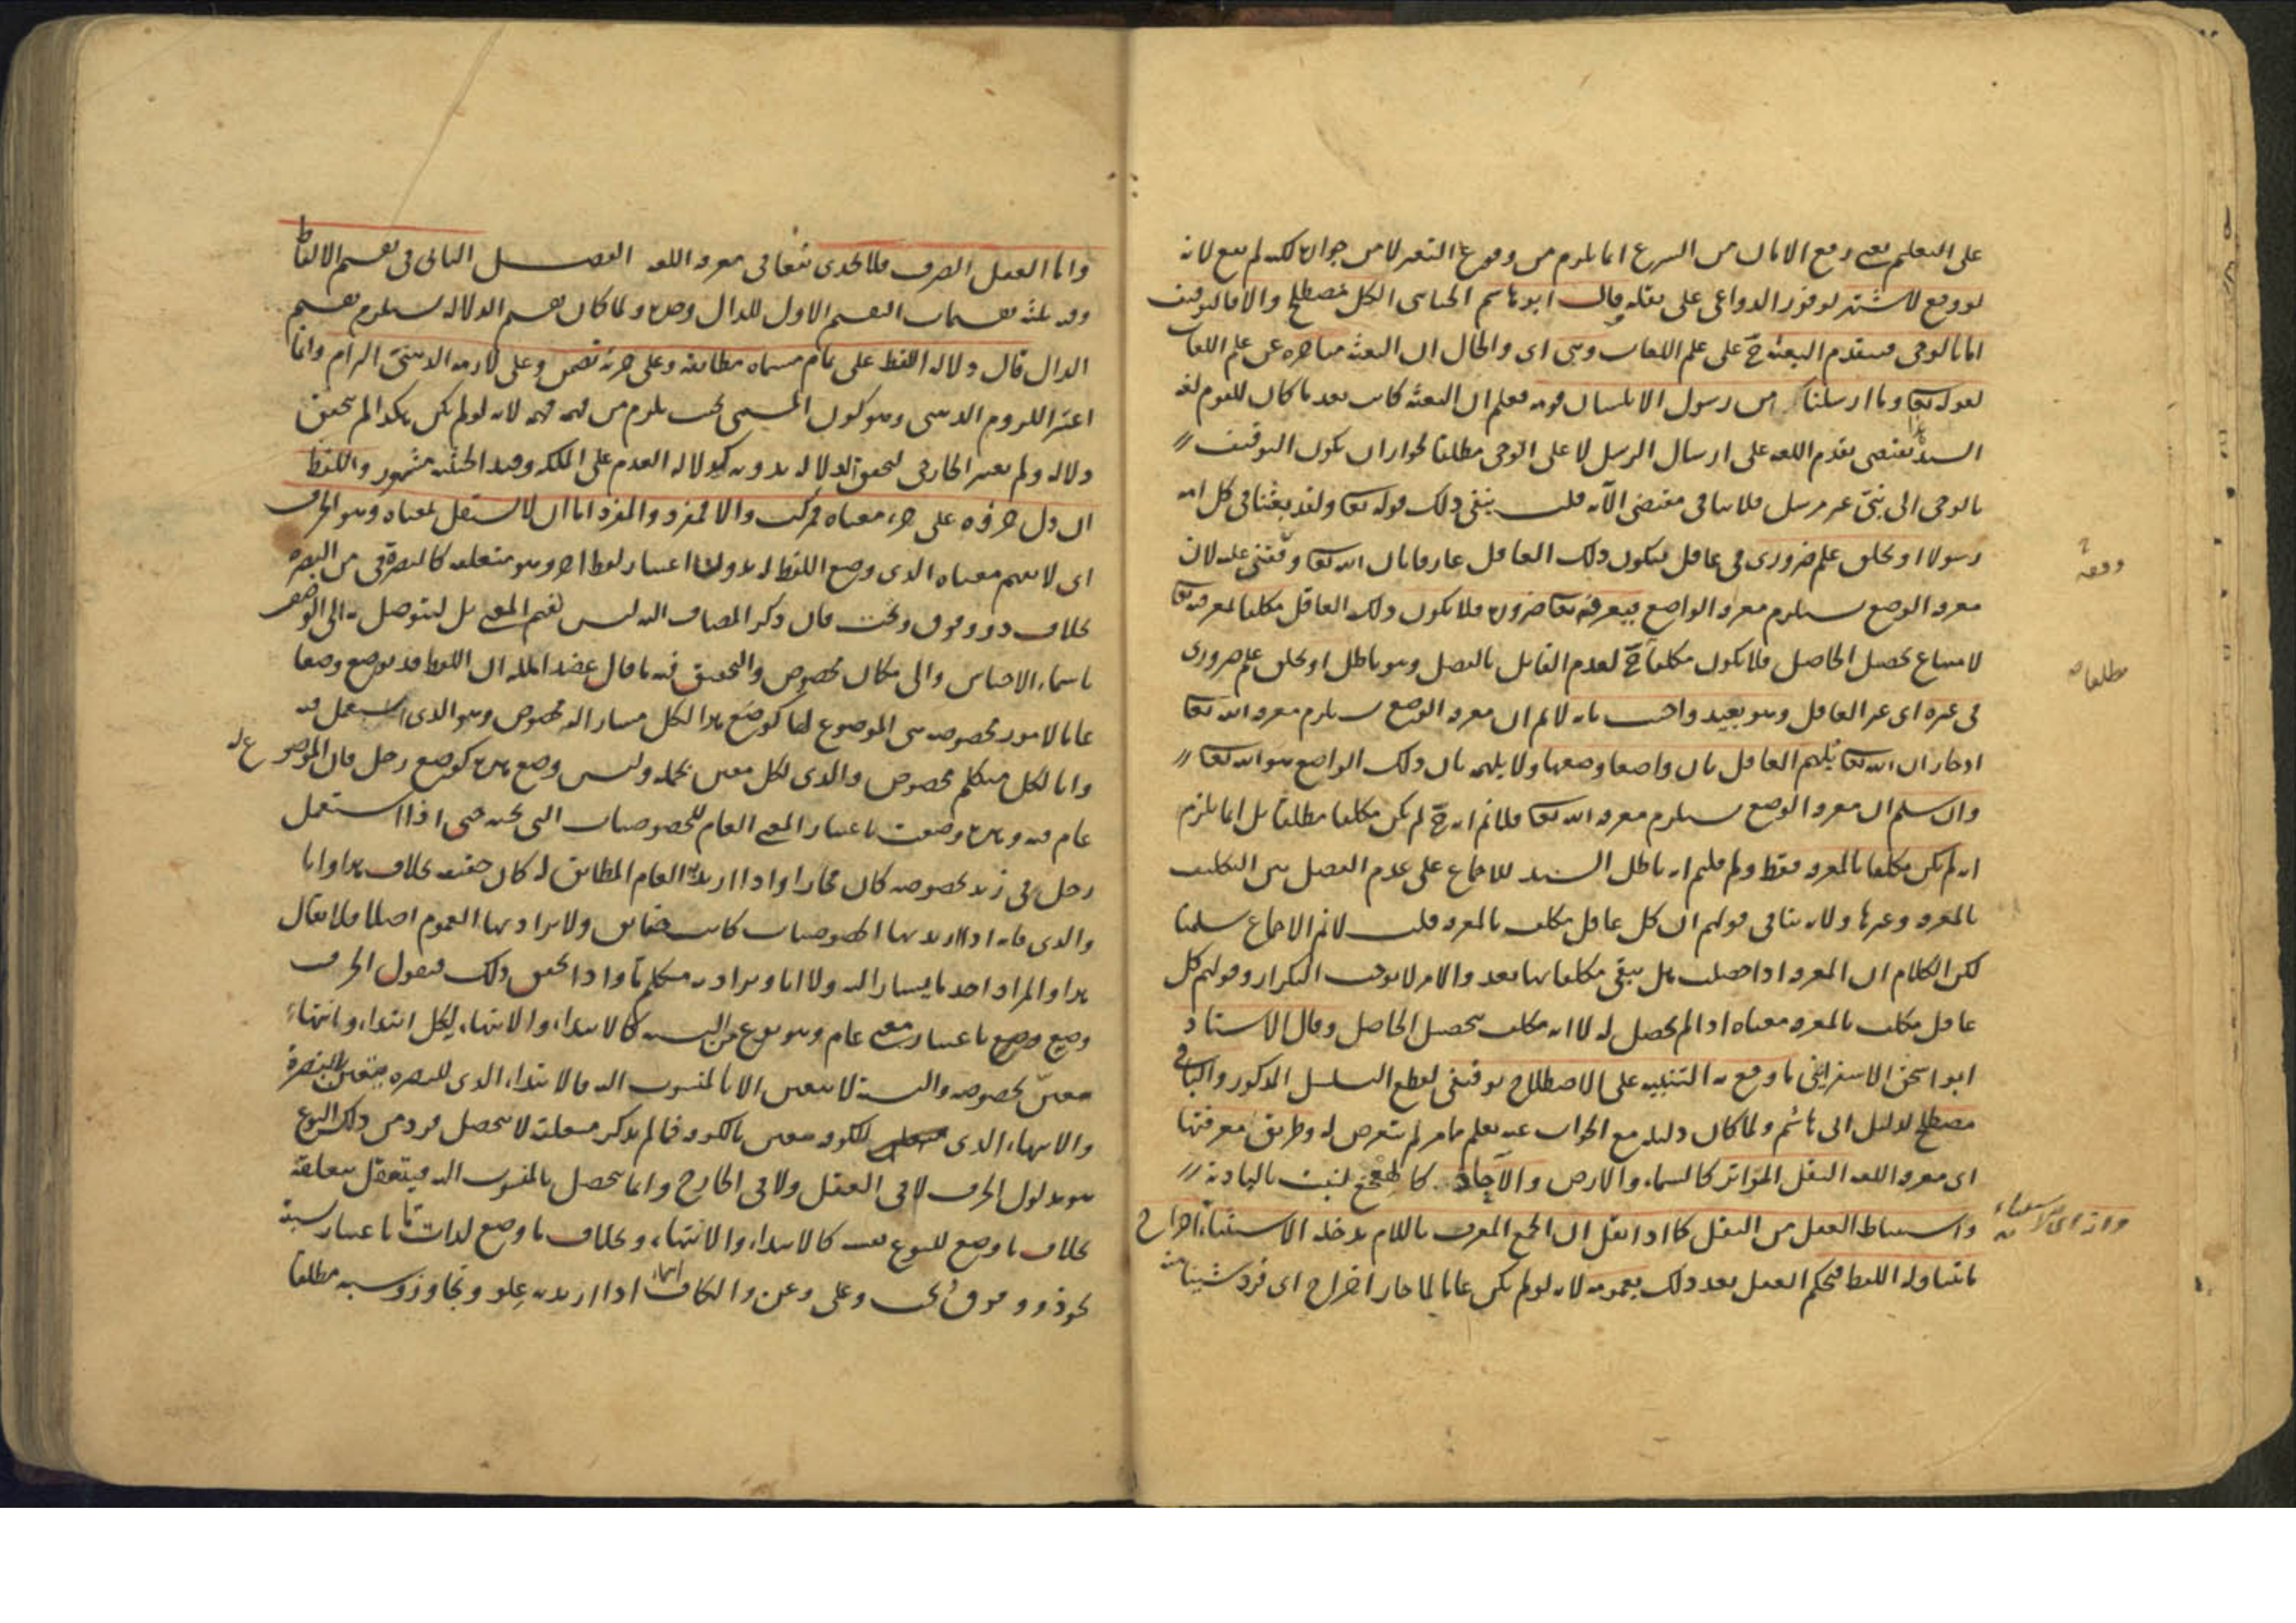 على التعلم يعني رفع الامان من الشرع انما يلزم من وقوع التغير لا من جوازه لكنه لم يقع لانه
لو وقع لاشتهر لوفور الدواعي على نقله وقال ابو هاشم الجبائي الكل مصطلح والا فالتوقيف
اما بالوحي فيتقدم البعثة ح على علم اللغات وهي اي والحال ان البعثة متاخرة عن علم اللغات
لقوله تعا وما ارسلنا من رسول الا بلسان قومه فعلم ان البعثة كانت بعد ما كان للقوم لغة
السند يقتضي تقدم اللغه على ارسال الرسل لا على الوحي مطلقا لجواز ان يكون التوقيف
بالوحي الى نبي غير مرسل فلا ينافي مقتضى الآية قلت ينفي ذلك قوله تعا ولقد بعثنا في كل امه
رسولا او بخلق علم ضروري في عاقل فيكون ذلك العاقل عارفا بان الله تعا وقفني عليه لان
معرفه الوضع يستلزم معرفه الواضع فيعرفه تعا ضرورة فلا يكون ذلك العاقل مكلفا لمعرفته تعا
لامتناع تحصيل الحاصل فلا يكون مكلفا ح لعدم القائل بالفصل وهو باطل او بخلق علم ضروري
في غيره اي غير العاقل وهو بعيد واجيب بانه لا نم ان معرفه الوضع يستلزم معرفه الله تعا
اذ جاز ان الله تعا يلهم العاقل بان واضعا وضعها ولا يلهمه بان ذلك الواضع هو الله تعا
وان سلم ان معرفه الوضع يستلزم معرفه الله تعا فلا نم انه ح لم يكن مكلفا مطلقا بل انما يلزم
انه لم يكن مكلفا بالمعرفه فقط ولم قلتم انه باطل السند للاجماع على عدم الفصل بين التكليف
بالمعرفه وغيرها ولانه ينافي قولهم ان كل عاقل مكلف بالمعرفه قلت لا نم الاجماع سلمنا
لكن الكلام ان المعرفه اذا حصلت هل يبقى مكلفا بها بعد والامر لا يوجب التكرار وقولهم كل
عاقل مكلف بالمعرفه معناه اذا لم يحصل له لا انه مكلف بتحصيل الحاصل وقال الاستاد
ابو اسحق الاسفرايني ما وقع به التنبيه على الاصطلاح توقيفي لقطع التسلسل المذكور والباقي
مصطلح لدليل ابي هاشم ولما كان دليله مع الجواب عنه يعلم مما مر لم يتعرض له وطريق معرفتها
اي معرفه اللغه النقل المتواتر كالسماء والارض والآحاد كالهعخع لنبت بالبادية
واستنباط العقل من النقل كما اذا نقل ان الجمع المعرف باللام يدخله الاستثناء اخراج
ما يتناوله اللفظ فيحكم العقل بعد ذلك بعمومه لانه لو لم يكن عاما لما جاز اخراج اي فرد شئنا منه
دفعه
مطلقا
واما العقل الصرف فلا يجدي نفعا في معرفه اللغه الفصل الثاني في تقسيم الالفاظ
وفيه ثلثه تقسيمات التقسيم الاول للدال وصفه ولما كان تقسيم الدلاله يستلزم تقسيم
الدال قال دلاله اللفظ على تمام مسماه مطابقه وعلى جزئه تضمن وعلى لازمه الذهني التزام وانما
اعتبر اللزوم الذهني وهو كون المسمى بحيث يلزم من فهمه فهمه لانه لو لم يكن هكذا لم يتحقق
دلاله ولم يعتبر الخارجي لتحقق الدلاله بدونه كدلاله العدم على الملكه وقيد الحيثيه مشهور واللفظ
ان دل جزؤه على جزء معناه فمركب والا فمفرد والمفرد اما ان لا يستقل بمعناه وهو الحرف
اي لا يفهم معناه الذي وضع اللفظ له بدون اعتبار لفظ اخر وهو متعلقه كالبصره في من البصره
بخلاف ذو وفوق وتحت فان ذكر المضاف اليه ليس لفهم المعنى بل ليتوصل به الى الوصف
باسماء الاجناس والى مكان مخصوص والتحقيق فيه ما قال عضد المله ان اللفظ قد يوضع وضعا
عاما لامور مخصوصه هي الموضوع لها كوضع هذا لكل مشار اليه مخصوص وهو الذي استعمل فيه
وانا لكل متكلم مخصوص والذي لكل معين بجمله وليس وضع هذه كوضع رجل فان الموضوع له
عام فيه وهذه وضعت باعتبار المعنى العام للخصوصيات التي تحته حتى اذا استعمل
رجل في زيد بخصوصه كان مجازا واذا اريد به العام المطابق له كان حقيقه بخلاف هذا وانا
والذي فانه اذا اريد بها الخصوصيات كانت حقائق ولا يراد بها العموم اصلا فلا يقال
هذا والمراد احد ما يشار اليه ولا انا ويراد به متكلم ما واذا تحقق ذلك فنقول الحرف
وضع باعتبار معنى عام وهو نوع من النسبه كالابتداء والانتهاء لكل ابتداء وانتهاء
معين بخصوصه والنسبة لا يتعين الا بالمنسوب اليه فالابتداء الذي للبصره يتعين بالبصرة
والانتهاء الذي للكوفه يتعين بالكوفه فما لم يذكر متعلقه لا يتحصل فرد من ذلك النوع
هو مدلول الحرف لا في العقل ولا في الخارج وانما يتحصل بالمنسوب اليه فيتعقل بتعلقه
بخلاف ما وضع للنوع نفسه كالابتداء والانتهاء وبخلاف ما وضع لذات ما باعتبار نسبة
نحو ذو وفوق وتحت وعلى وعن والكاف اسماء اذا اريد به علو وتجاوز وشبه مطلقا